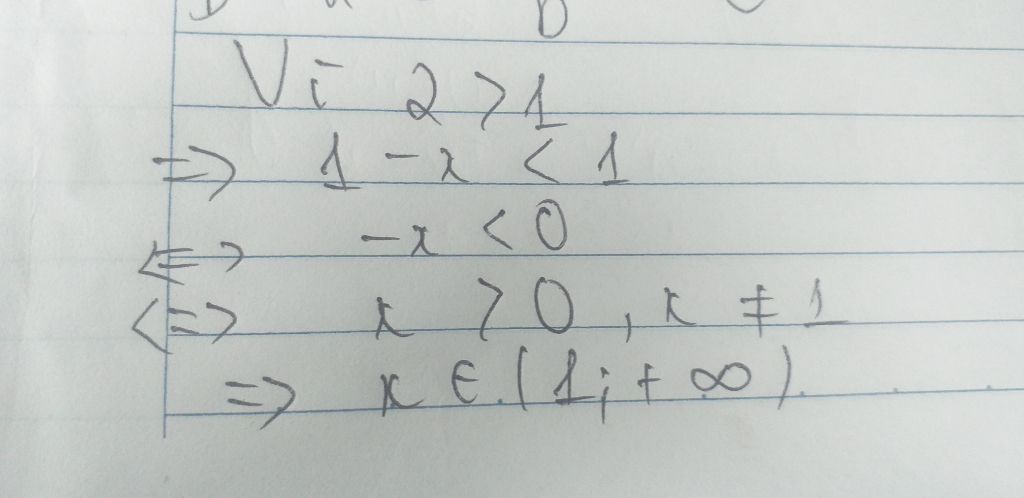 Vì 2 > 1
=> 1 - x < 1
<=> -x < 0
<=> x > 0, x ≠ 1
=> x ∈ (1; + ∞).